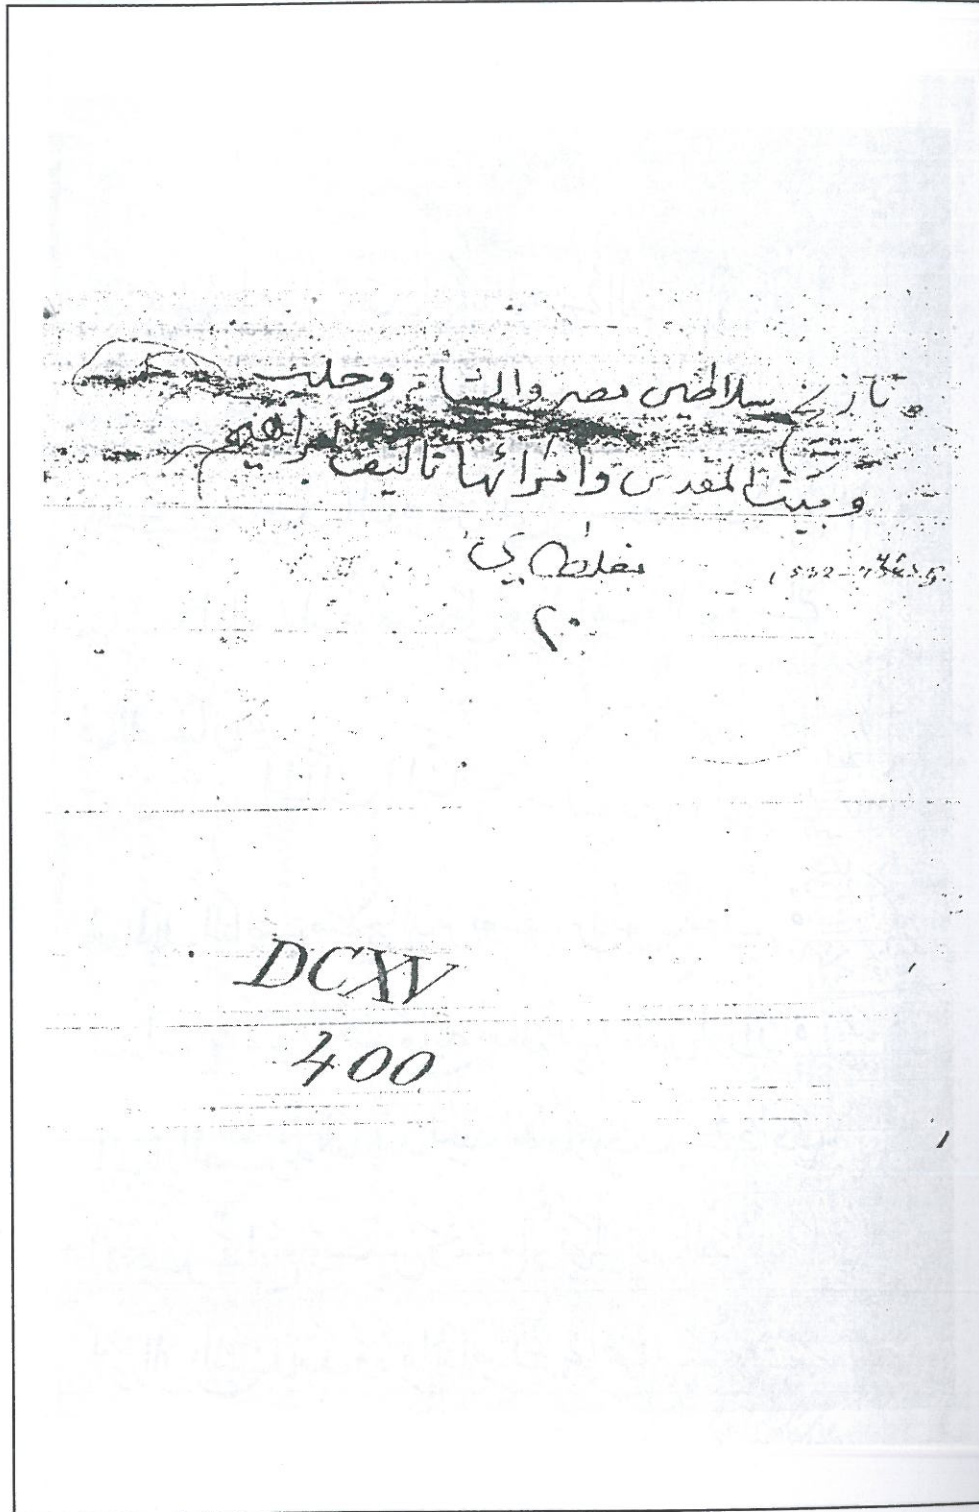 تاريخ سلاطين مصر والشام وحلب
وبيت المقدس وامرائها تأليف ابراهيم
مغلطاي
٢٠
DCXV
400